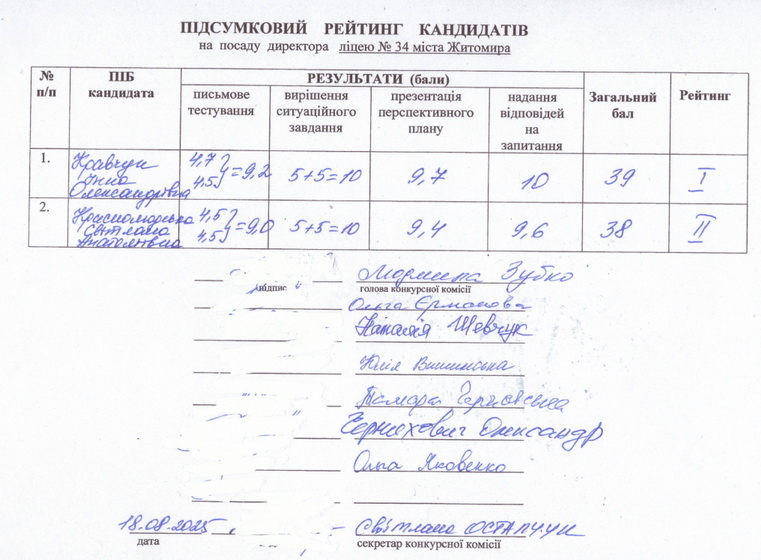 ПІДСУМКОВИЙ РЕЙТИНГ КАНДИДАТІВ
на посаду директора ліцею № 34 міста Житомира
№ п/п
ПІБ кандидата
РЕЗУЛЬТАТИ (бали)
письмове тестування
вирішення ситуаційного завдання
презентація перспективного плану
надання відповідей на запитання
Загальний бал
Рейтинг
1. Кравчук Інна Олександрівна 4,7 4,5 = 9,2 5+5=10 9,7 10 39 I
2. Світлана Анатоліївна 4,5 4,5 = 9,0 5+5=10 9,4 9,6 38 II
підпис
Зубко
голова конкурсної комісії
Ольга Єрманова
Наталія Шевчук
Юлія Вишинська
Тамара
Олександр
Ольга Яковенко
18.08.2025 Світлана ОСТАПЧУК
дата
секретар конкурсної комісії